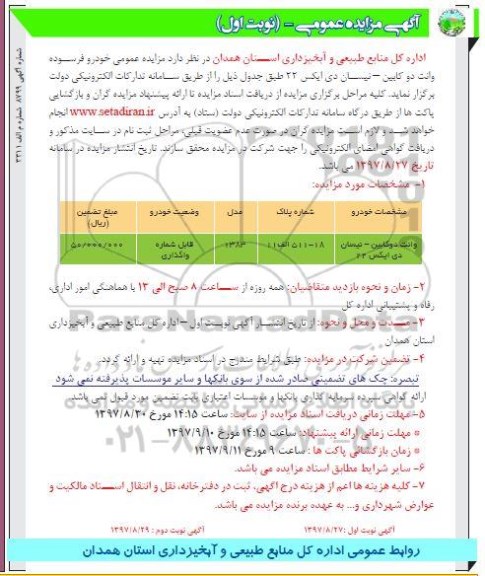 آگهی مزایده عمومی - (نوبت اول)
شماره آگهی ۸۷۹۹ شماره م الف ۲۳۱۱
اداره کل منابع طبیعی و آبخیزداری اســتان همدان در نظر دارد مزایده عمومی خودرو فرســوده
وانت دو کابین – نیســان دی ایکس ۲۲ طبق جدول ذیل را از طریق سـامانه تدارکات الکترونیکی دولت
برگزار نماید. کلیه مراحل برگزاری مزایده از دریافت اسناد مزایده تا ارائه پیشنهاد مزایده گران و بازگشایی
پاکت ها از طریق درگاه سامانه تدارکات الکترونیکی دولت (ستاد) به آدرس www.setadiran.ir انجام
خواهد شــد و لازم اســت مزایده گران در صورت عدم عضویت قبلی، مراحل ثبت نام در ســایت مذکور و
دریافت گواهی امضای الکترونیکی را جهت شرکت در مزایده محقق سازند. تاریخ انتشار مزایده در سامانه
تاریخ ۱۳۹۷/۸/۲۷ می باشد.
۱- مشخصات مورد مزایده:
مشخصات خودرو شماره پلاک مدل وضعیت خودرو مبلغ تضمین (ریال)
وانت دوکابین – نیسان دی ایکس ۲۲ ۱۸-۵۱۱ الف ۱۱ ۱۳۸۳ قابل شماره واگذاری ۵۰/۰۰۰/۰۰۰
۲- زمان و نحوه بازدید متقاضیان: همه روزه از ســاعت ۸ صبح الی ۱۳ با هماهنگی امور اداری،
رفاه و پشتیبانی اداره کل
۳- مــدت و محل و نحوه: از تاریخ انتشــار آگهی نوبــت اول – اداره کل منابع طبیعی و آبخیزداری
استان همدان
۴- تضمین شرکت در مزایده: طبق شرایط مندرج در اسناد مزایده تهیه و ارائه گردد.
تبصره: چک های تضمینی صادر شده از سوی بانکها و سایر موسسات پذیرفته نمی شود
ارائه گواهی سپرده سرمایه گذاری بانکها و موسسات اعتباری بابت تضمین مورد قبول نمی باشد.
۵- مهلت زمانی دریافت اسناد مزایده از سایت: ساعت ۱۴:۱۵ مورخ ۱۳۹۷/۸/۳۰
* مهلت زمانی ارائه پیشنهاد: ساعت ۱۴:۱۵ مورخ ۱۳۹۷/۹/۱۰
* زمان بازگشائی پاکت ها : ساعت ۹ مورخ ۱۳۹۷/۹/۱۱
۶- سایر شرایط مطابق اسناد مزایده می باشد.
۷- کلیه هزینه ها اعم از هزینه درج آگهی، ثبت در دفترخانه، نقل و انتقال اســناد مالکیت و
عوارض شهرداری و... به عهده برنده مزایده می باشد.
آگهی نوبت اول :۱۳۹۷/۸/۲۷ آگهی نوبت دوم : ۱۳۹۷/۸/۲۹
روابط عمومی اداره کل منابع طبیعی و آبخیزداری استان همدان